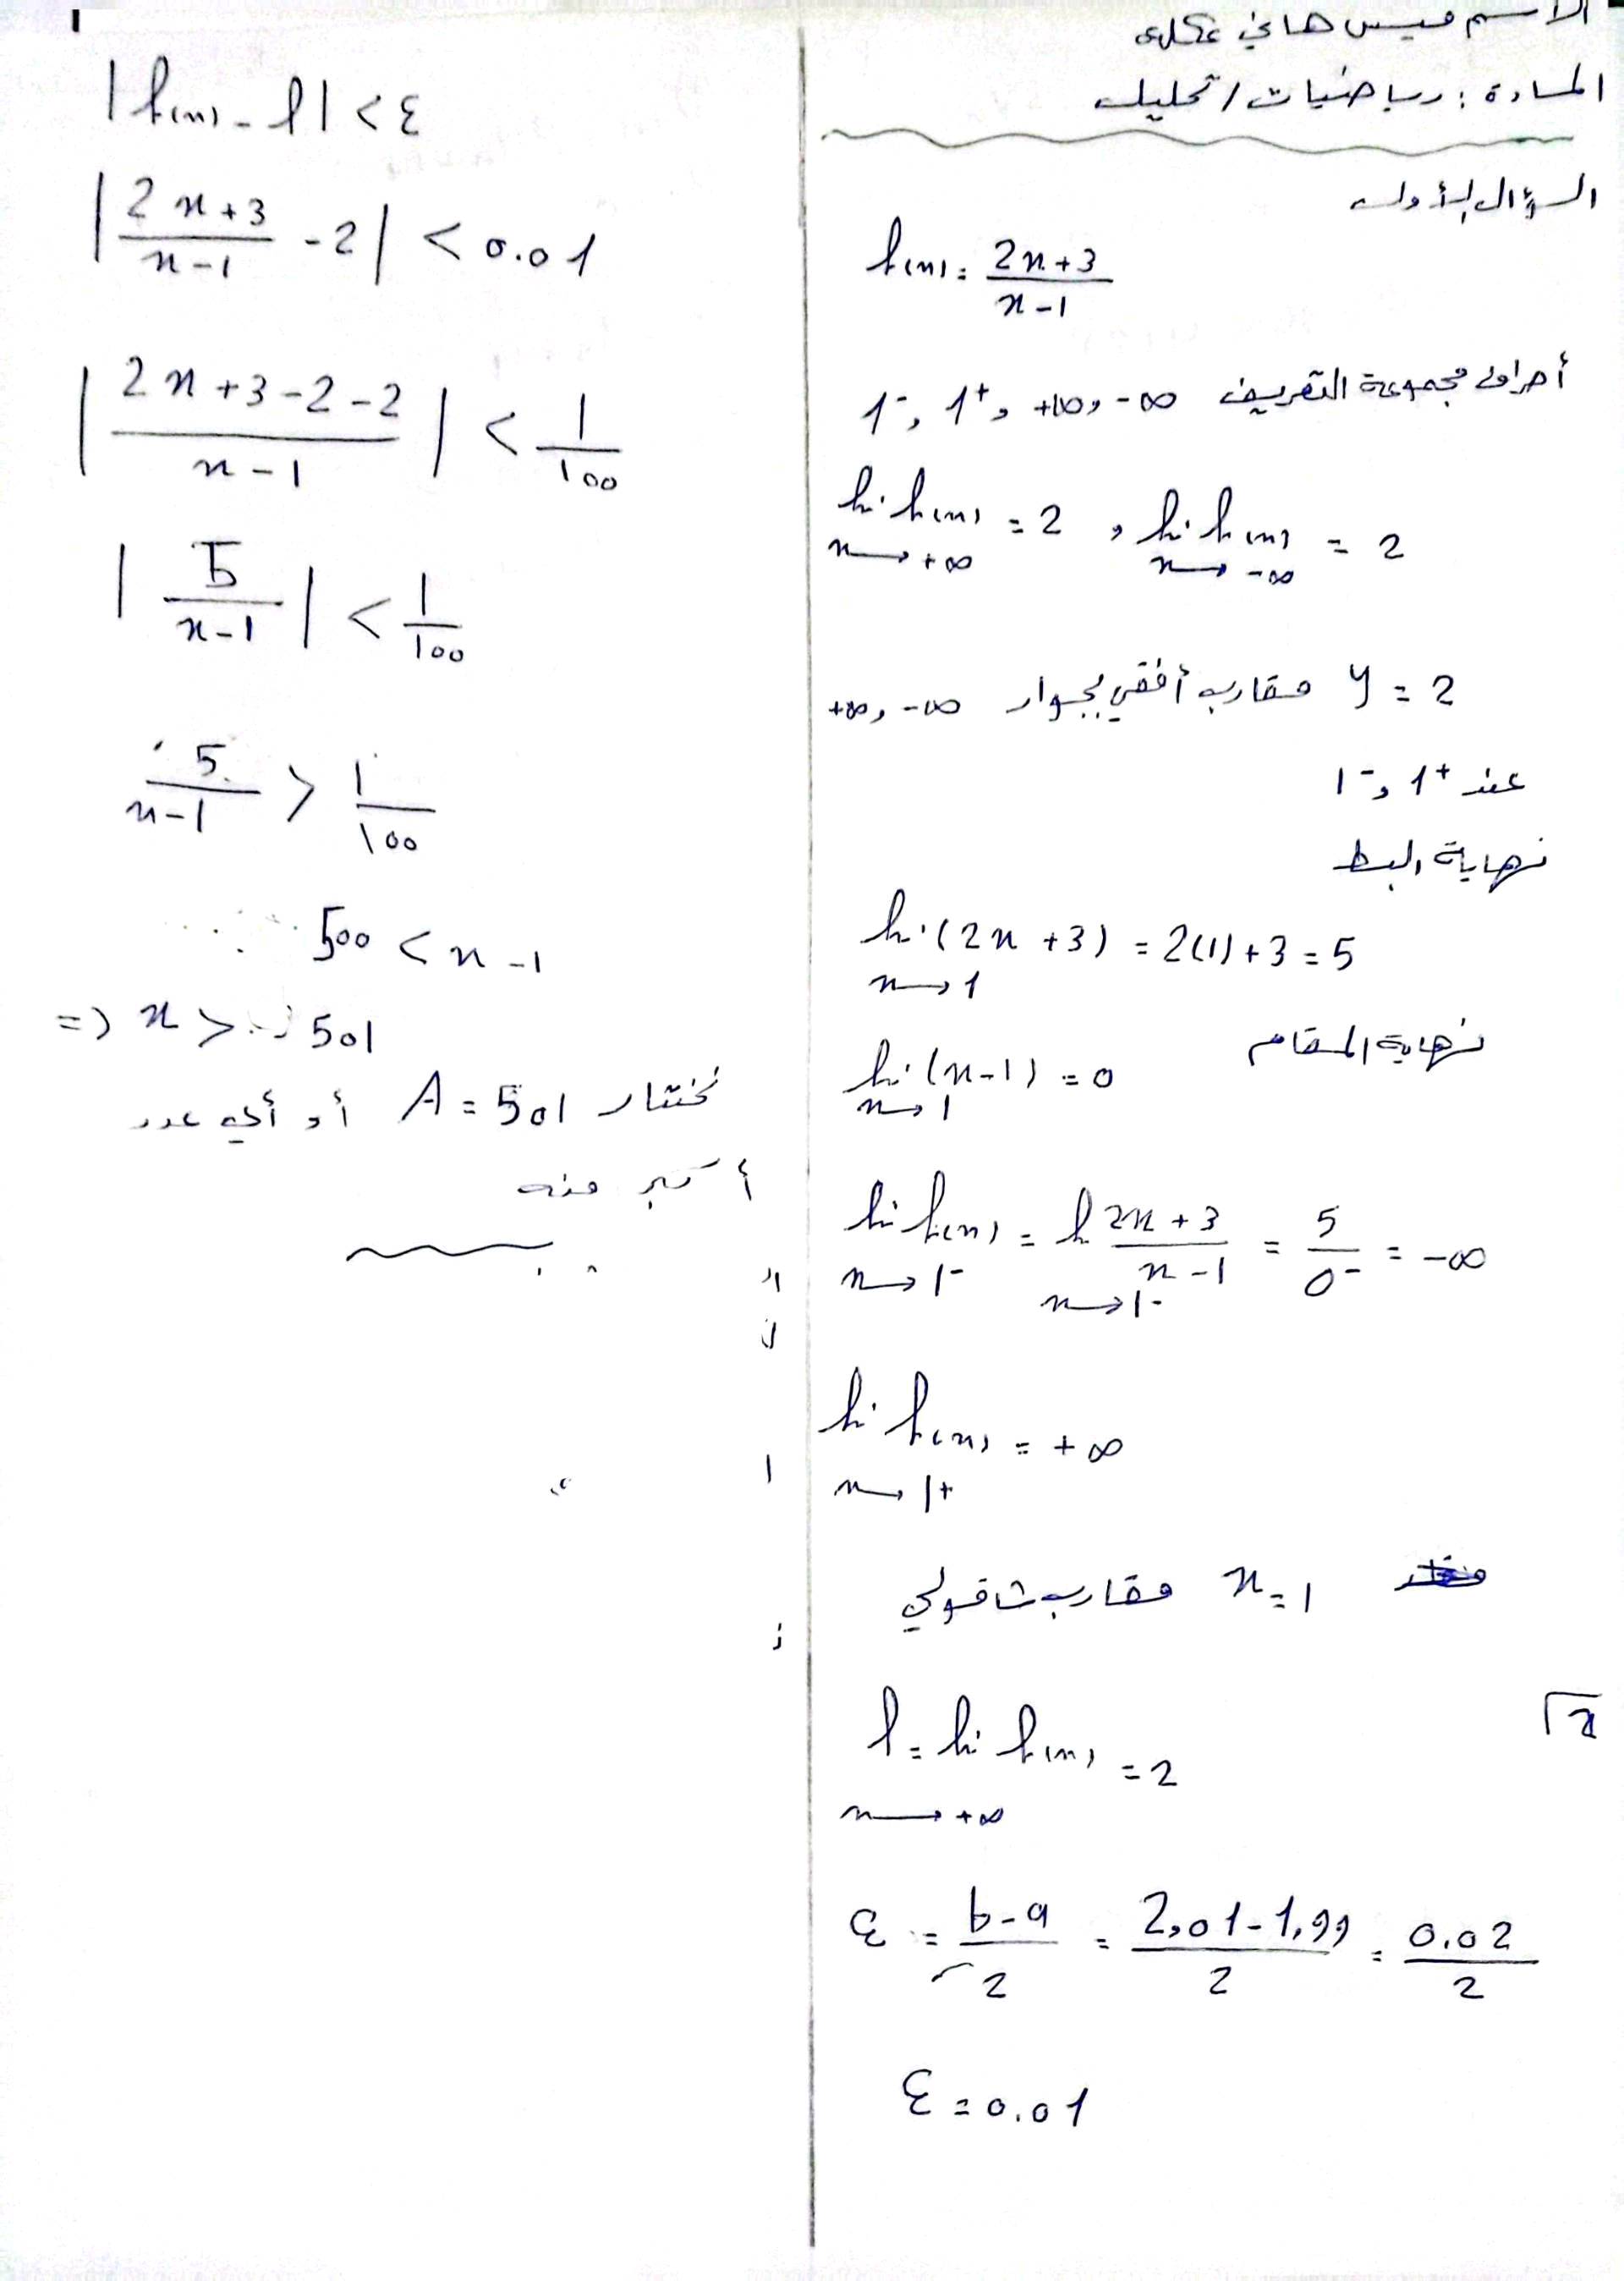 الاسم ميس هاني عكاري
المادة : رياضيات / تحليل
السؤال الأول
f(x) = \frac{2x+3}{x-1}
أطراف مجموعة التعريف -∞ , +∞ , 1⁺ , 1⁻
lim f(x) = 2 , lim f(x) = 2
x → +∞ x → -∞
y = 2 مقارب أفقي بجوار -∞ , +∞
عند 1⁺ و 1⁻
نهاية البسط
lim (2x + 3) = 2(1) + 3 = 5
x → 1
نهاية المقام
lim (x-1) = 0
x → 1
lim f(x) = l \frac{2x+3}{x-1} = \frac{5}{0⁻} = -∞
x → 1⁻ x → 1⁻
lim f(x) = +∞
x → 1⁺
x = 1 مقارب شاقولي
2
l = lim f(x) = 2
x → +∞
ε = \frac{b-a}{2} = \frac{2,01-1,99}{2} = \frac{0.02}{2}
ε = 0.01
|f(x) - l| < ε
|\frac{2x+3}{x-1} - 2| < 0.01
|\frac{2x+3-2-2}{x-1}| < \frac{1}{100}
|\frac{5}{x-1}| < \frac{1}{100}
\frac{5}{x-1} > \frac{1}{100}
500 < x-1
=> x > 501
نختار A = 501 أو أي عدد
أكبر منه